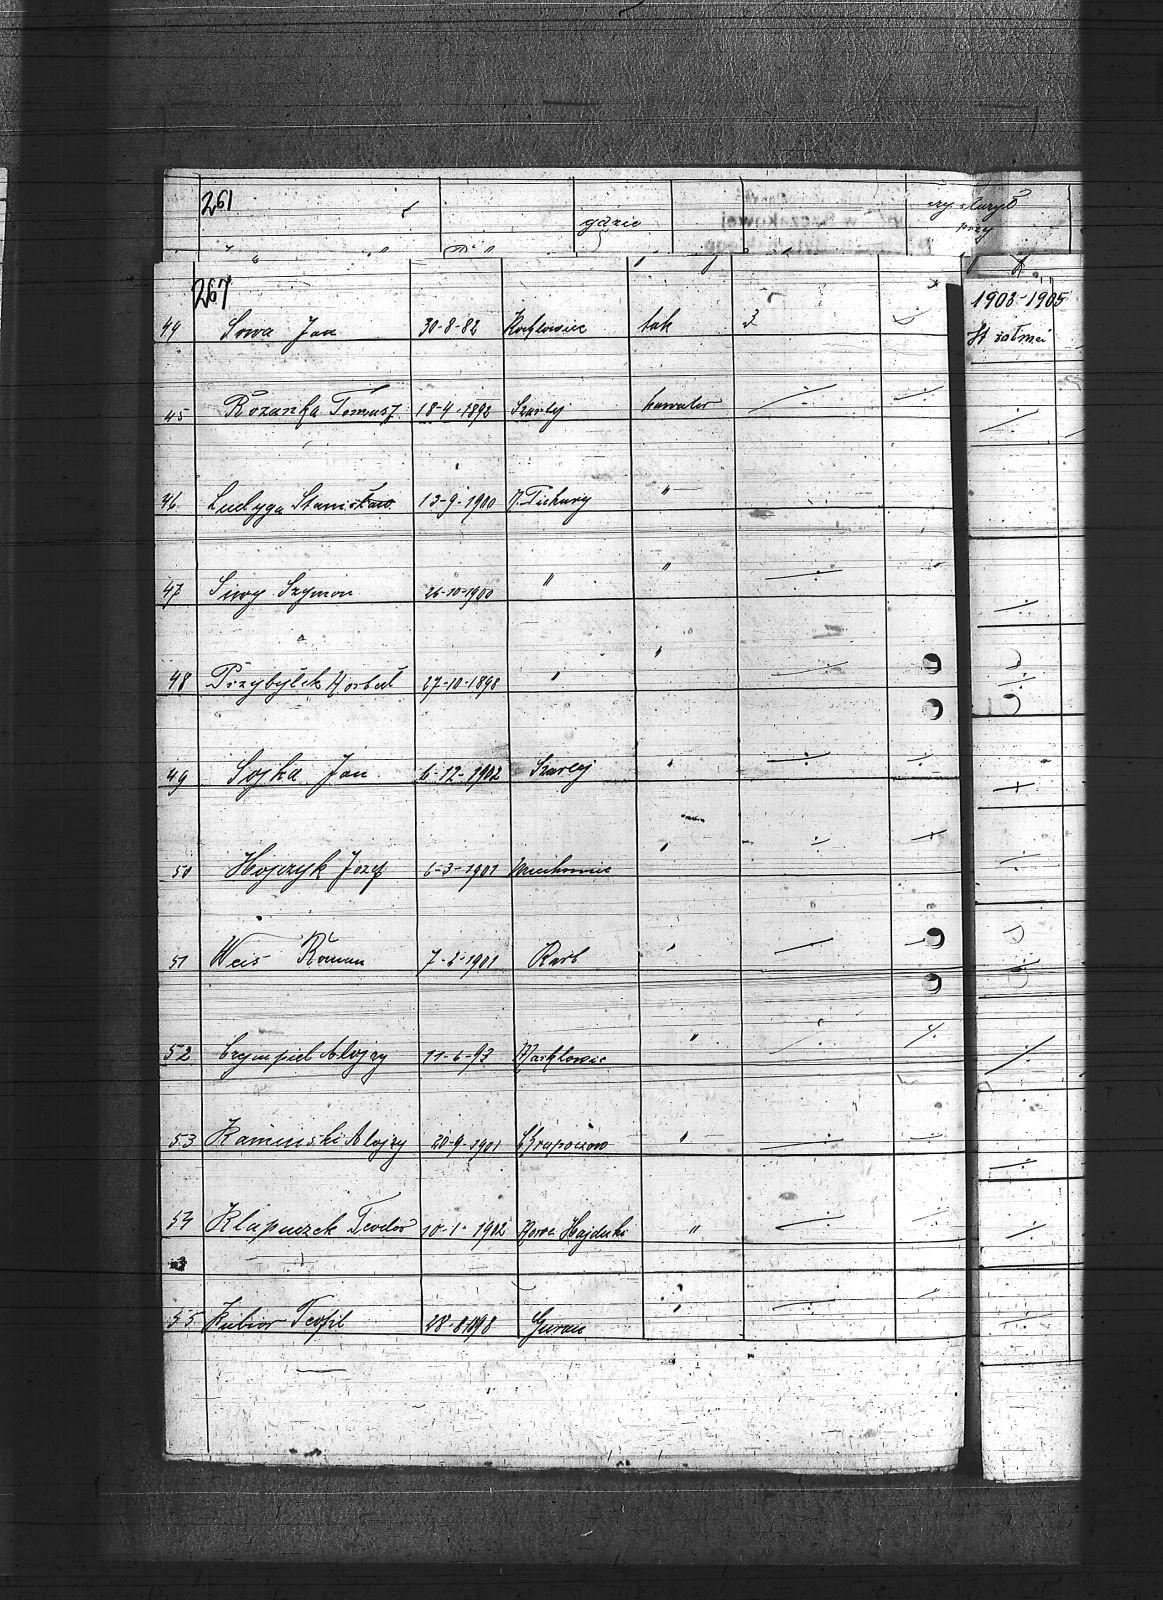 261
gdzie
czy służył
przy
267
1903-1905
44 Sowa Jan 30-8-82 tak 3
45 Rozanka Tomasz 18-4-1892 Szarlej kawaler
46 Ludyga Stanisław 13-9-1900 "
47 Siwy Szymon 26-10-1900 " "
48 Przybyłek Norbert 27-10-1898 " "
49 Sojka Jan 6-12-1902 Szarlej "
50 Hojczyk Jozef 6-3-1901 Miechowic "
51 Weis Roman 7-2-1901 Karb "
52 Alojzy 11-6-93 "
53 Kaminski Alojzy 20-9-1901 "
54 Klapuczek Teodor 10-1-1902 Nowe Hajduki "
55 Kubior Teofil 28-8-1898 "